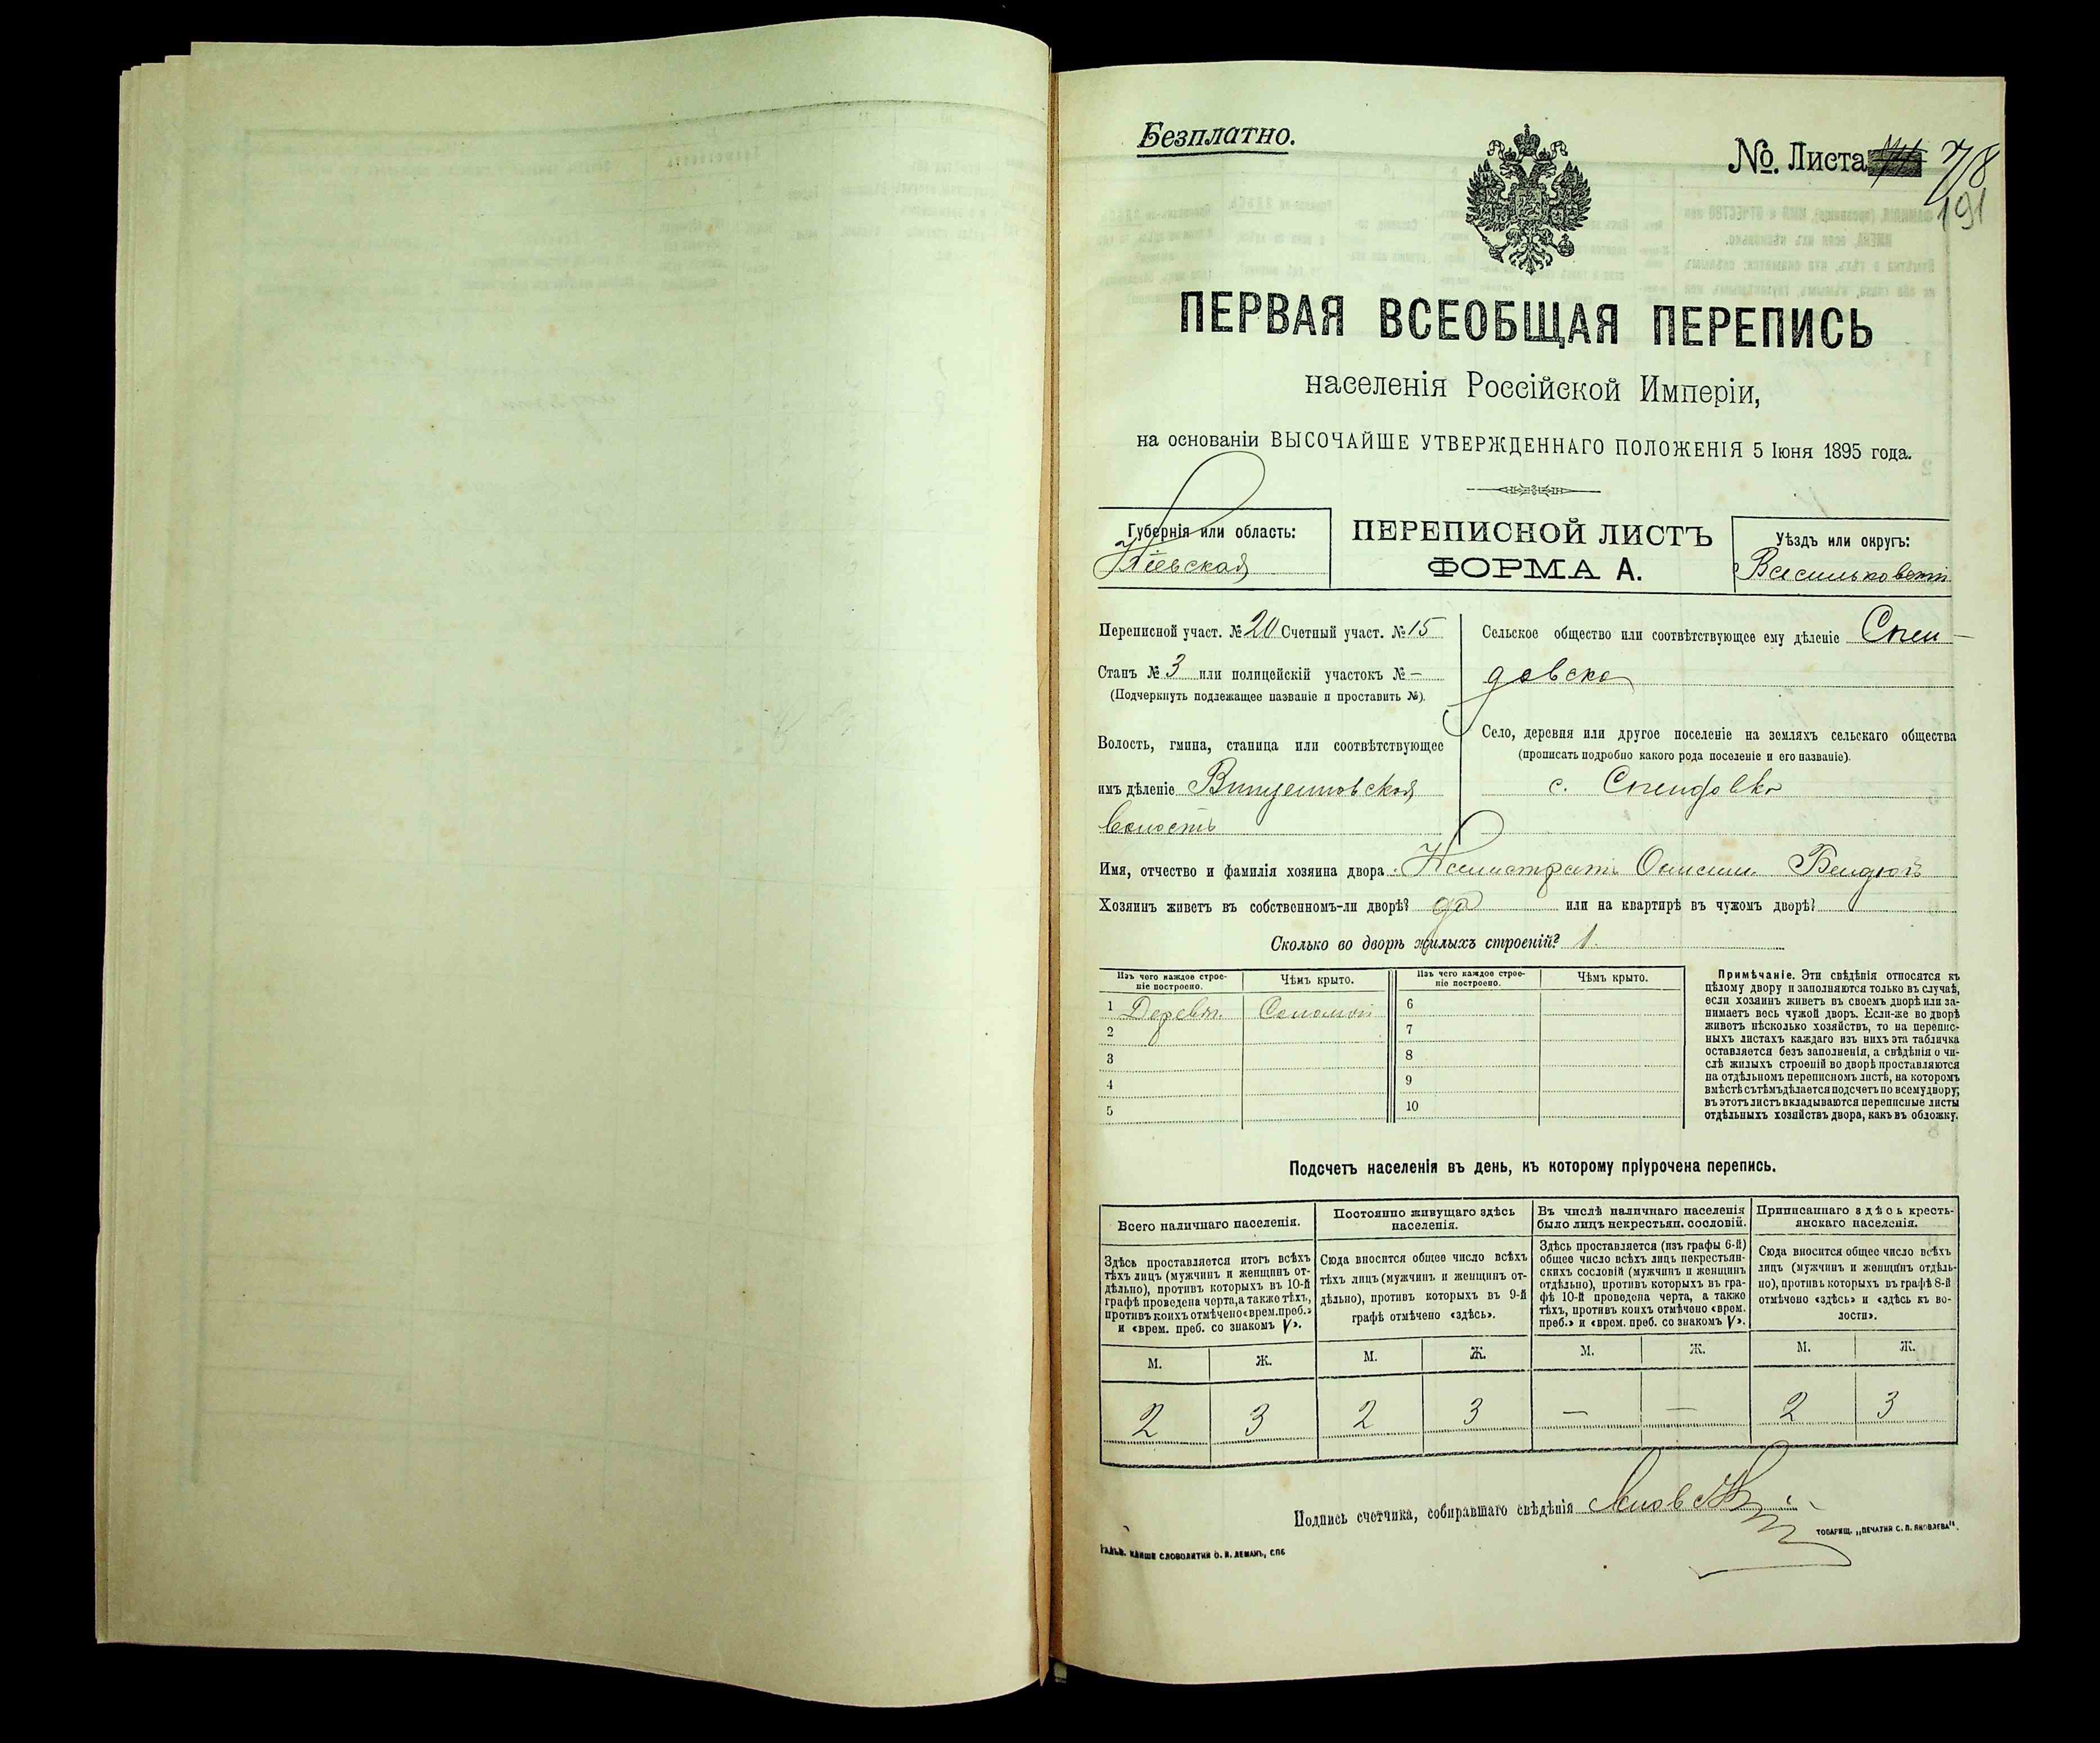 Безплатно.
№. Листа 78
191
ПЕРВАЯ ВСЕОБЩАЯ ПЕРЕПИСЬ
населенія Россійской Имперіи,
на основаніи ВЫСОЧАЙШЕ УТВЕРЖДЕННАГО ПОЛОЖЕНІЯ 5 Іюня 1895 года.
Губернія или область:
Кіевская
ПЕРЕПИСНОЙ ЛИСТЪ
ФОРМА А.
Уѣздъ или округъ:
Васильковскій
Переписной участ. № 20 Счетный участ. № 15
Станъ № 3 или полицейскій участокъ № —
(Подчеркнуть подлежащее названіе и проставить №).
Волость, гмина, станица или соотвѣтствующее
имъ дѣленіе Винцентовская
волость
Сельское общество или соотвѣтствующее ему дѣленіе Спен-
довско
Село, деревня или другое поселеніе на земляхъ сельскаго общества
(прописать подробно какого рода поселеніе и его названіе).
с. Спендовка
Имя, отчество и фамилія хозяина двора Калистратъ
Хозяинъ живетъ въ собственномъ-ли дворѣ? да или на квартирѣ въ чужомъ дворѣ?
Сколько во дворѣ жилыхъ строеній? 1.
Изъ чего каждое строе-
ніе построено.
Чѣмъ крыто.
Изъ чего каждое строе-
ніе построено.
Чѣмъ крыто.
1 Деревян. Соломой
2
3
4
5
6
7
8
9
10
Примѣчаніе. Эти свѣдѣнія относятся къ
цѣлому двору и заполняются только въ случаѣ,
если хозяинъ живетъ въ своемъ дворѣ или за-
нимаетъ весь чужой дворъ. Если-же во дворѣ
живетъ нѣсколько хозяйствъ, то на перепис-
ныхъ листахъ каждаго изъ нихъ эта табличка
оставляется безъ заполненія, а свѣдѣнія о чи-
слѣ жилыхъ строеній во дворѣ проставляются
на отдѣльномъ переписномъ листѣ, на которомъ
вмѣстѣ съ тѣмъ дѣлается подсчетъ по всему двору;
въ этотъ листъ вкладываются переписные листы
отдѣльныхъ хозяйствъ двора, какъ въ обложку.
Подсчетъ населенія въ день, къ которому пріурочена перепись.
Всего наличнаго населенія.
Здѣсь проставляется итогъ всѣхъ
тѣхъ лицъ (мужчинъ и женщинъ от-
дѣльно), противъ которыхъ въ 10-й
графѣ проведена черта, а также тѣхъ,
противъ коихъ отмѣчено «врем. преб.»
и «врем. преб. со знакомъ V».
М. Ж.
2 3
Постоянно живущаго здѣсь
населенія.
Сюда вносится общее число всѣхъ
тѣхъ лицъ (мужчинъ и женщинъ от-
дѣльно), противъ которыхъ въ 9-й
графѣ отмѣчено «здѣсь».
М. Ж.
2 3
Въ числѣ наличнаго населенія
было лицъ некрестьян. сословій.
Здѣсь проставляется (изъ графы 6-й)
общее число всѣхъ лицъ некрестьян-
скихъ сословій (мужчинъ и женщинъ
отдѣльно), противъ которыхъ въ гра-
фѣ 10-й проведена черта, а также
тѣхъ, противъ коихъ отмѣчено «врем.
преб.» и «врем. преб. со знакомъ V».
М. Ж.
— —
Приписаннаго здѣсь кресть-
янскаго населенія.
Сюда вносится общее число всѣхъ
лицъ (мужчинъ и женщинъ отдѣль-
но), противъ которыхъ въ графѣ 8-й
отмѣчено «здѣсь» и «здѣсь къ во-
лости».
М. Ж.
2 3
Подпись счетчика, собиравшаго свѣдѣнія
ТОВАРИЩ. „ПЕЧАТНЯ С. П. ЯКОВЛЕВА".
КЛИШЕ СЛОВОЛИТНИ О. И. ЛЕМАНЪ, СПБ